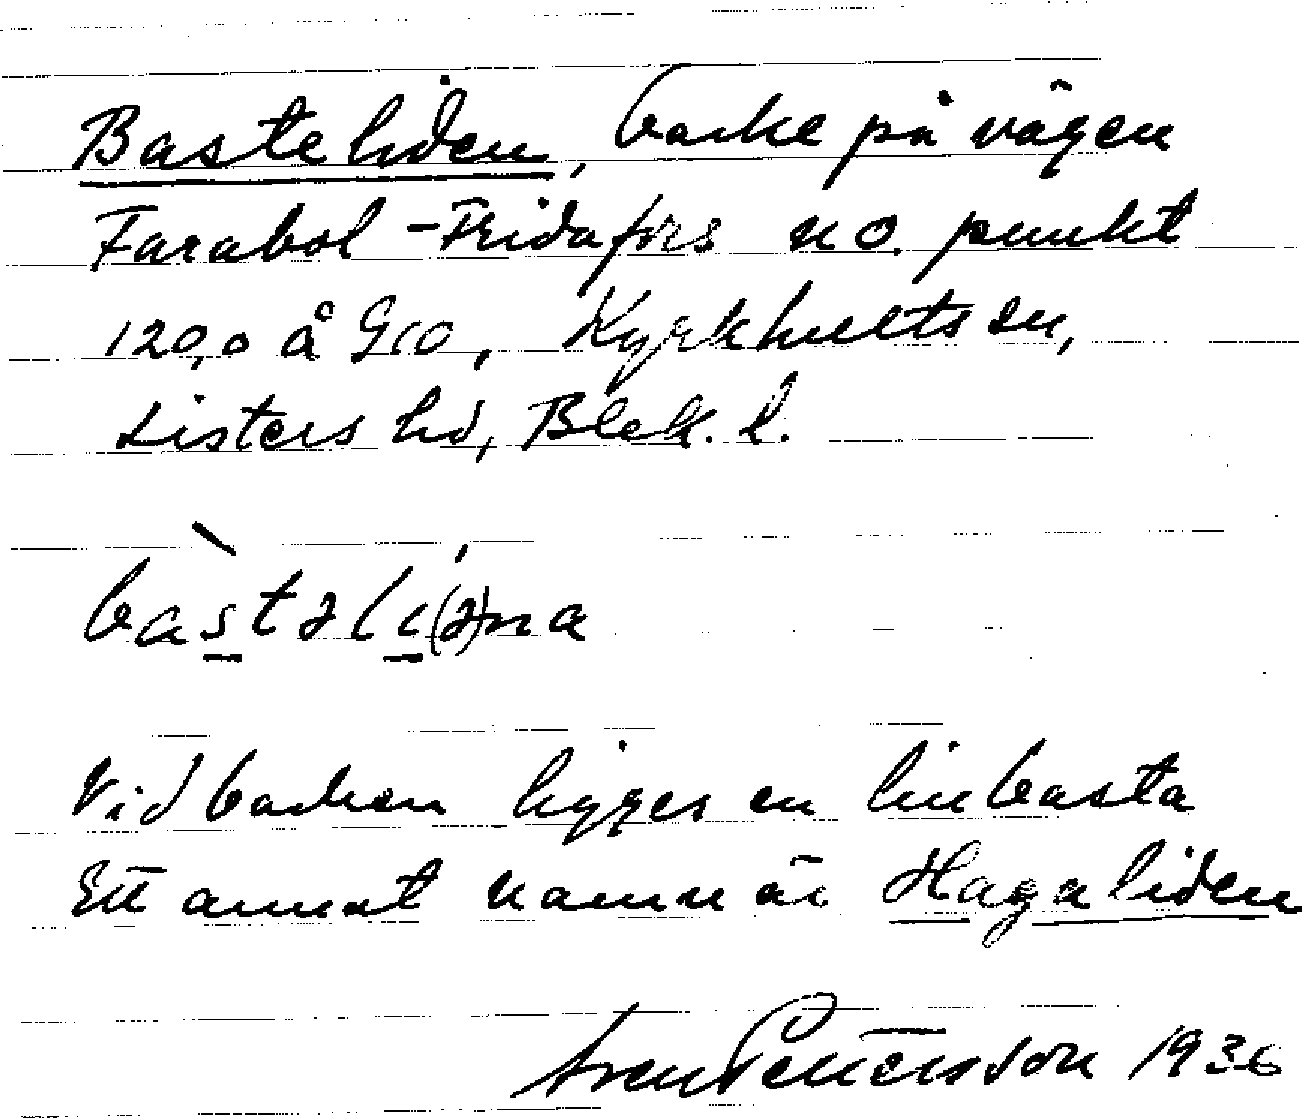 Basteliden, backe på vägen
Farabol - Fridafors n o. punkt
120,0 å GK, Kyrkhults sn,
Listers hd, Blek. l.
bastəlɩ(ə)na
Vid backen ligger en linbasta
Ett annat namn är Hagaliden
Sven Pettersson 1936